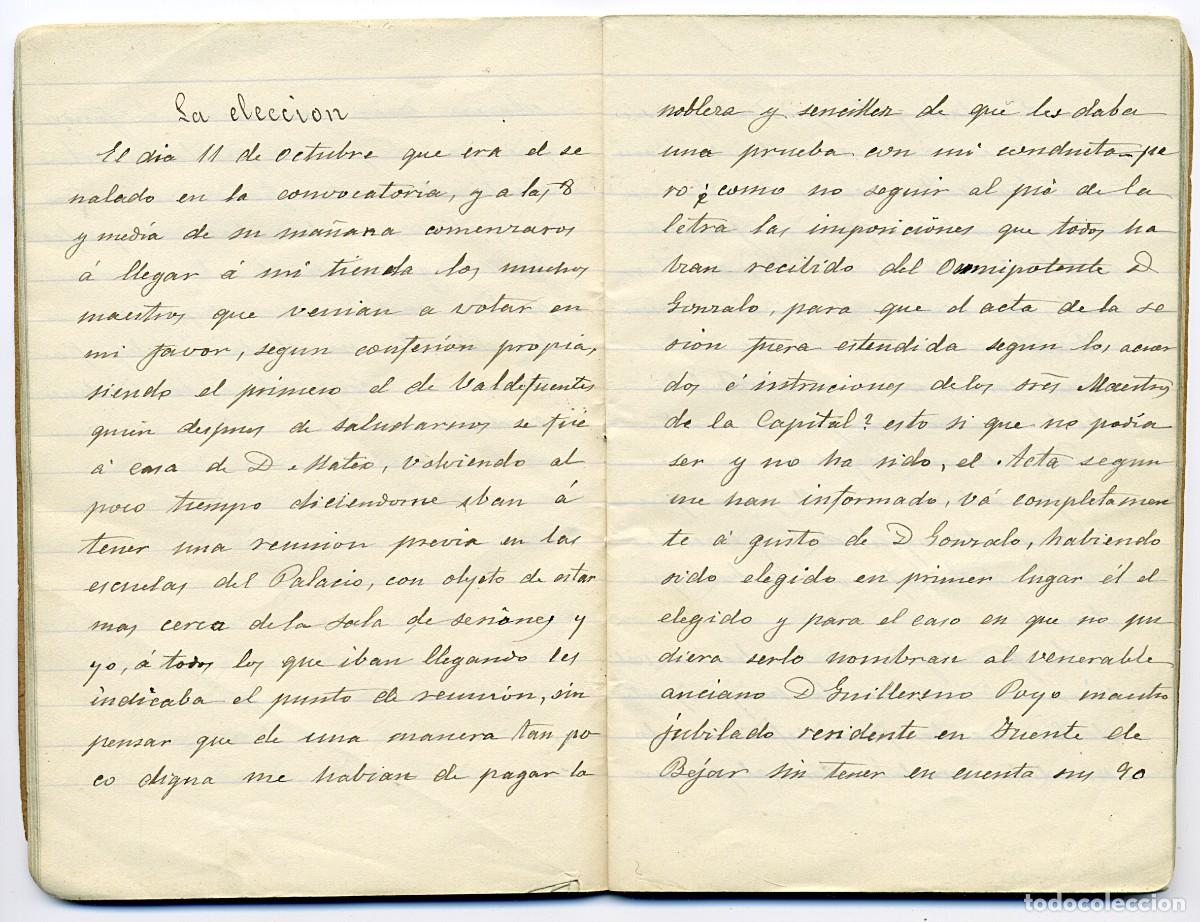 La eleccion
El dia 11 de octubre que era el se
nalado en la convocatoria, y a las 8
y media de su mañana comenzaros
á llegar á mi tienda los muchos
maestros que venian a votar en
mi favor, segun confesión propia,
siendo el primero el de Valdefuentes
quien despues de saludarnos se fué
á casa de D Mateo, volviendo al
poco tiempo diciendome iban á
tener una reunion previa en las
escuelas del Palacio, con objeto de estar
mas cerca de la sala de sesiónes y
yo, á todos los que iban llegando les
indicaba el punto de reunión, sin
pensar que de una manera tan po
co digna me habian de pagar la
nobleza y sencillez de que les daba
una prueba con mi conducta pe
ro ¿como no seguir al pié de la
letra las imposiciónes que todos ha
bian recibido del Omnipotente D
Gonzalo, para que el acta de la se
sion fuera estendida segun los acuer
dos é instruciones de los srēs Maestros
de la Capital? esto si que no podia
ser y no ha sido, el Acta segun
me han informado, vá completamen
te á gusto de D Gonzalo, habiendo
sido elegido en primer lugar él el
elegido y para el caso en que no pu
diera serlo nombran al venerable
anciano D Guillermo Poyo maestro
jubilado residente en Fuente de
Béjar sin tener en cuenta sus 90
todocoleccion